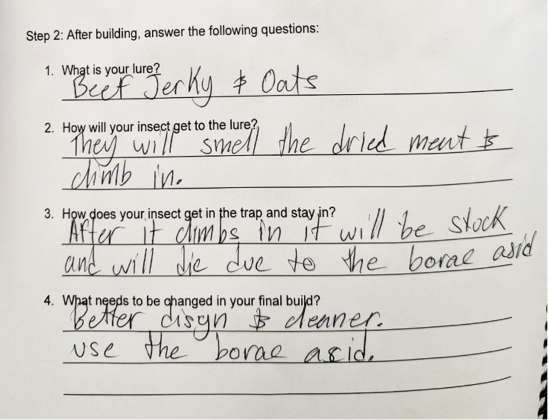 Step 2: After building, answer the following questions:
1. What is your lure?
Beef Jerky & Oats
2. How will your insect get to the lure?
They will smell the dried meat &
climb in.
3. How does your insect get in the trap and stay in?
After it climbs in it will be stuck
and will die due to the borac asid
4. What needs to be changed in your final build?
Better disgn & cleaner.
use the borac acid.